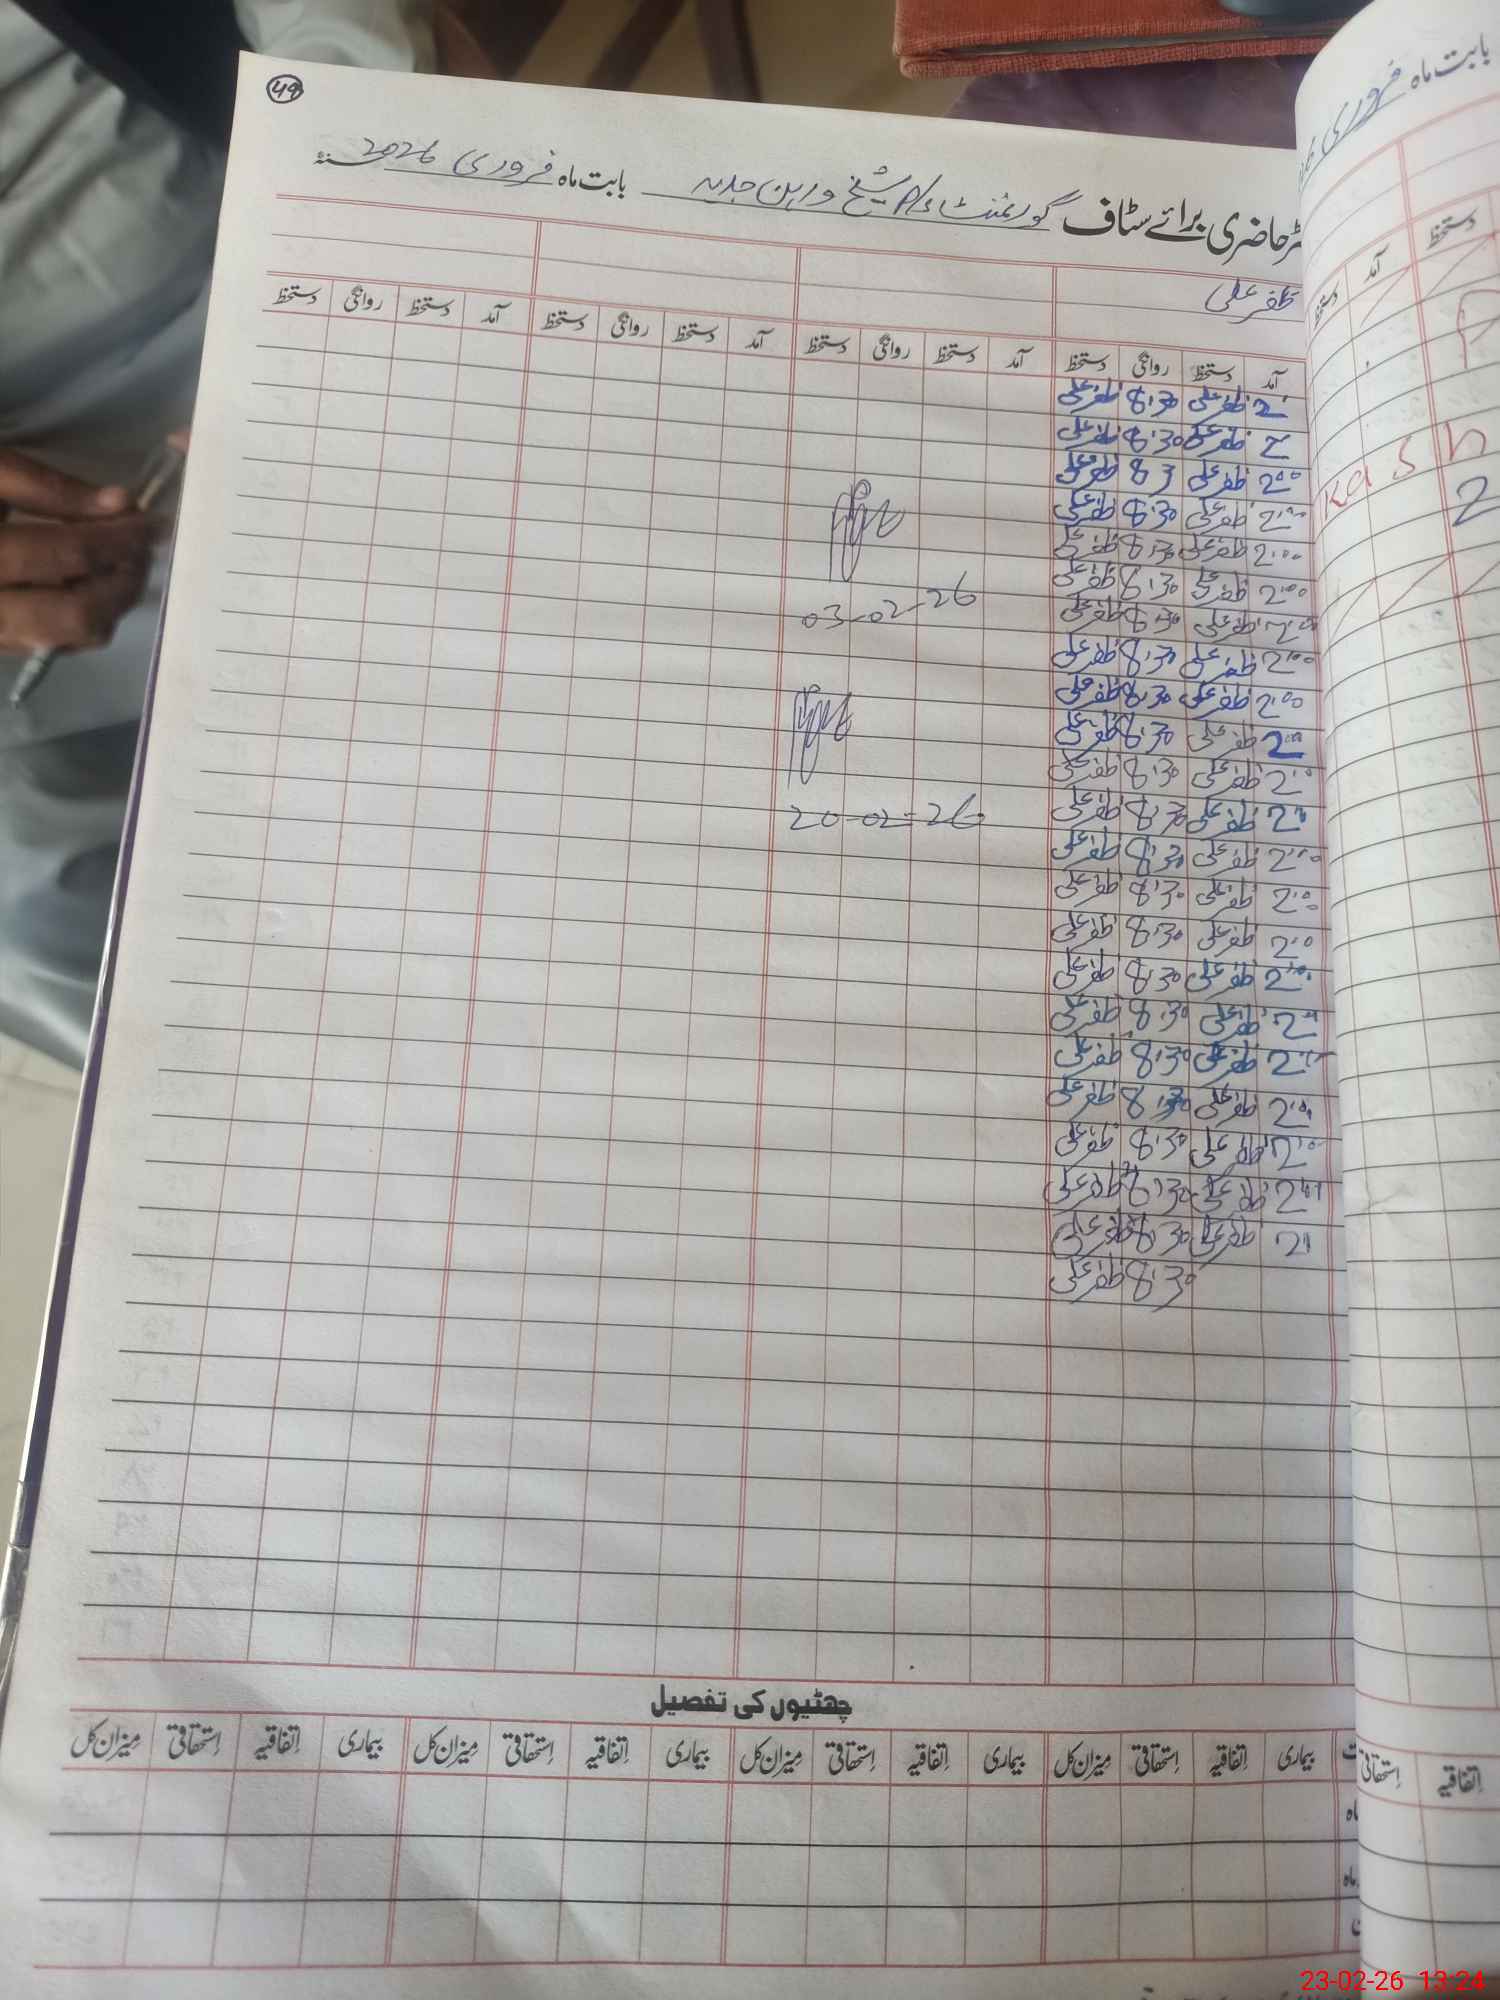 49
رحاضری برائے سٹاف گورنمنٹ P/s شیخ وراہن جدید بابت ماہ فروری 2026 سنہ
ظفر علی
آمد دستخط روانگی دستخط آمد دستخط روانگی دستخط آمد دستخط روانگی دستخط آمد دستخط روانگی دستخط
2 ظفر علی 8:30 ظفر علی
2 ظفر علی 8:30 ظفر علی
2:00 ظفر علی 8 3 ظفر علی
2:00 ظفر علی 8:30 ظفر علی
2:00 ظفر علی 8:30 ظفر علی
2:00 ظفر علی 8:30 ظفر علی
2:00 ظفر علی 8:30 ظفر علی
03-02-26
2:00 ظفر علی 8:30 ظفر علی
2:00 ظفر علی 8:30 ظفر علی
2:00 ظفر علی 8:30 ظفر علی
2:0 ظفر علی 8:30 ظفر علی
2:0 ظفر علی 8:30 ظفر علی
20-02-26
2:00 ظفر علی 8:30 ظفر علی
2:00 ظفر علی 8:30 ظفر علی
2:0 ظفر علی 8:30 ظفر علی
2:00 ظفر علی 8:30 ظفر علی
2:00 ظفر علی 8:30 ظفر علی
2:00 ظفر علی 8:30 ظفر علی
2:00 ظفر علی 8:30 ظفر علی
2:0 ظفر علی 8:30 ظفر علی
2:01 ظفر علی 8:30 ظفر علی
21 ظفر علی 8:30 ظفر علی
8:30 ظفر علی
چھٹیوں کی تفصیل
بیماری اتفاقیہ استحقاقی میزان کل بیماری اتفاقیہ استحقاقی میزان کل بیماری اتفاقیہ استحقاقی میزان کل بیماری اتفاقیہ استحقاقی میزان کل
بابت ماہ فروری
دستخط آمد دستخط
Kash
2
اتفاقیہ استحقاقی
23-02-26 13:24